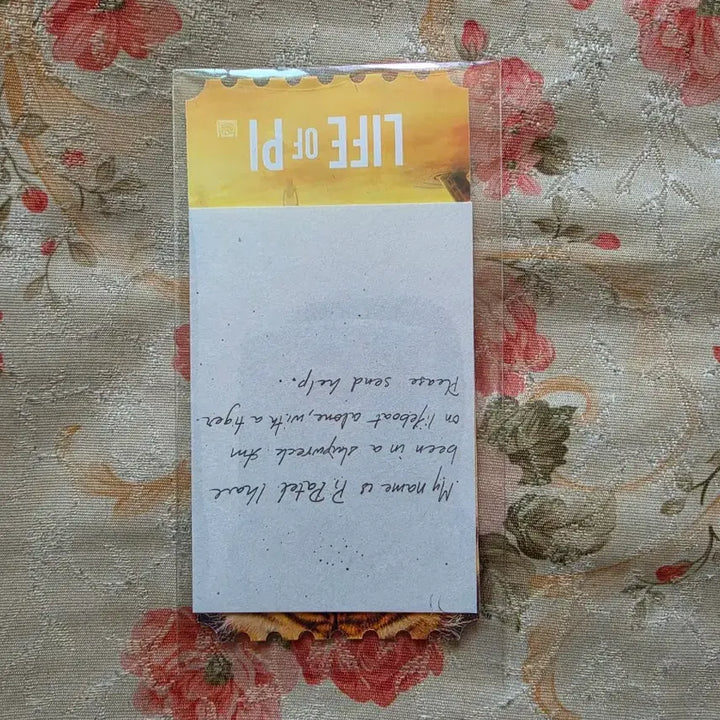 My name is Pi Patel I have
been in a shipwreck Am
on lifeboat alone, with a tiger.
Please send help..
LIFE OF PI